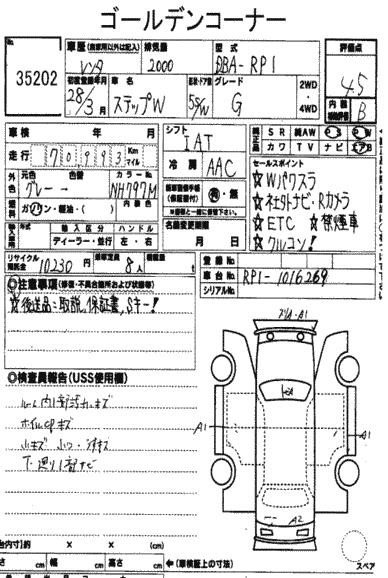 ゴールデンコーナー
No. 35202
車歴(自家用以外は記入) レンタ
排気量 2000
型式 DBA-RP1
評価点 4.5
初度登録年月 28年/3月
車名 ステップW
形状・ドア数 5SW
グレード G
2WD・4WD
内装 B
車検 年 月
シフト IAT
SR 純AW PS PW
カワ TV ナビ エアB
走行 70993 Km マイル
冷房 AAC
セールスポイント
☆Wパワスラ
☆社外ナビ・Rカメラ
☆ETC ☆禁煙車
☆クルコン!
外色 元色 グレー → 色替
カラーNo. NH797M
有・無
燃料 ガソリン・軽油・( ) 内装色
名義変更期限 月 日
輸入区分 ハンドル
ディーラー・並行 左・右
リサイクル預託金 10230円
乗車定員 8人
積載量 t
登録No.
車台No. RP1-1016269
シリアルNo.
◎注意事項(修復・不具合箇所および状態等)
☆後送品:取説、保証書、Sキー!
◎検査員報告(USS使用欄)
ルーム内
ホイルCPキズ
小キズ
A1
A1
A2
荷台内寸)約 × × (cm)
長さ cm 幅 cm 高さ cm ←(車検証上の寸法)
スペア